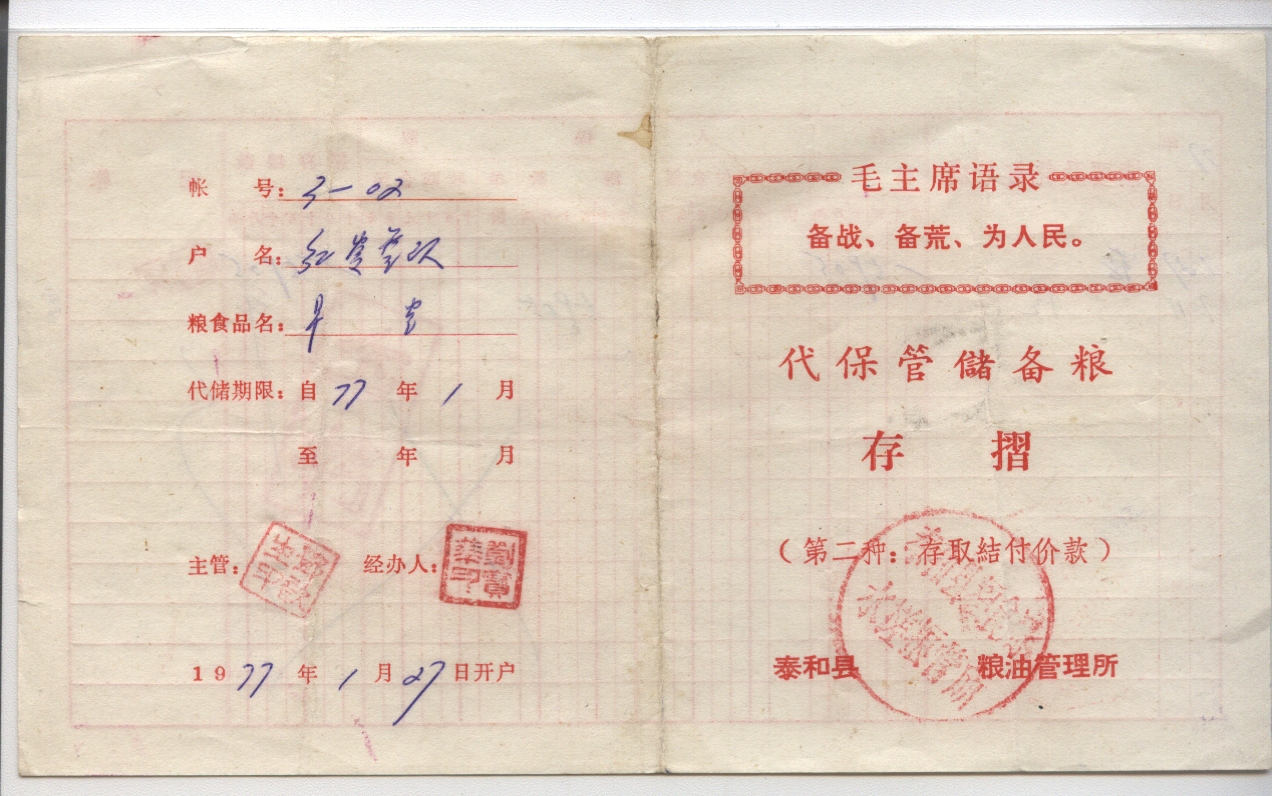 帐 号：3-02
户 名：
粮食品名：早
代储期限：自77年1月
至 年 月
主管： 经办人：劉寶華印
1977年1月27日开户
毛主席语录
备战、备荒、为人民。
代保管儲备粮
存 摺
（第二种：存取結付价款）
泰和县 粮油管理所